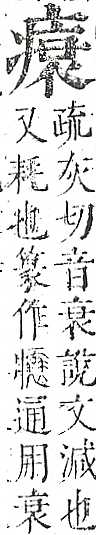 疏灰切音衰說文減也
又耗也篆作通用衰